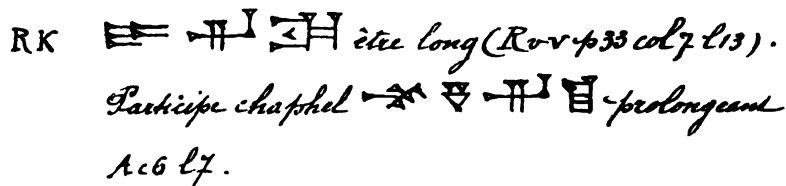 RK être long (R v v p33 col 7 l 13).
Participe chaphel prolongeant
Ac6 l7.